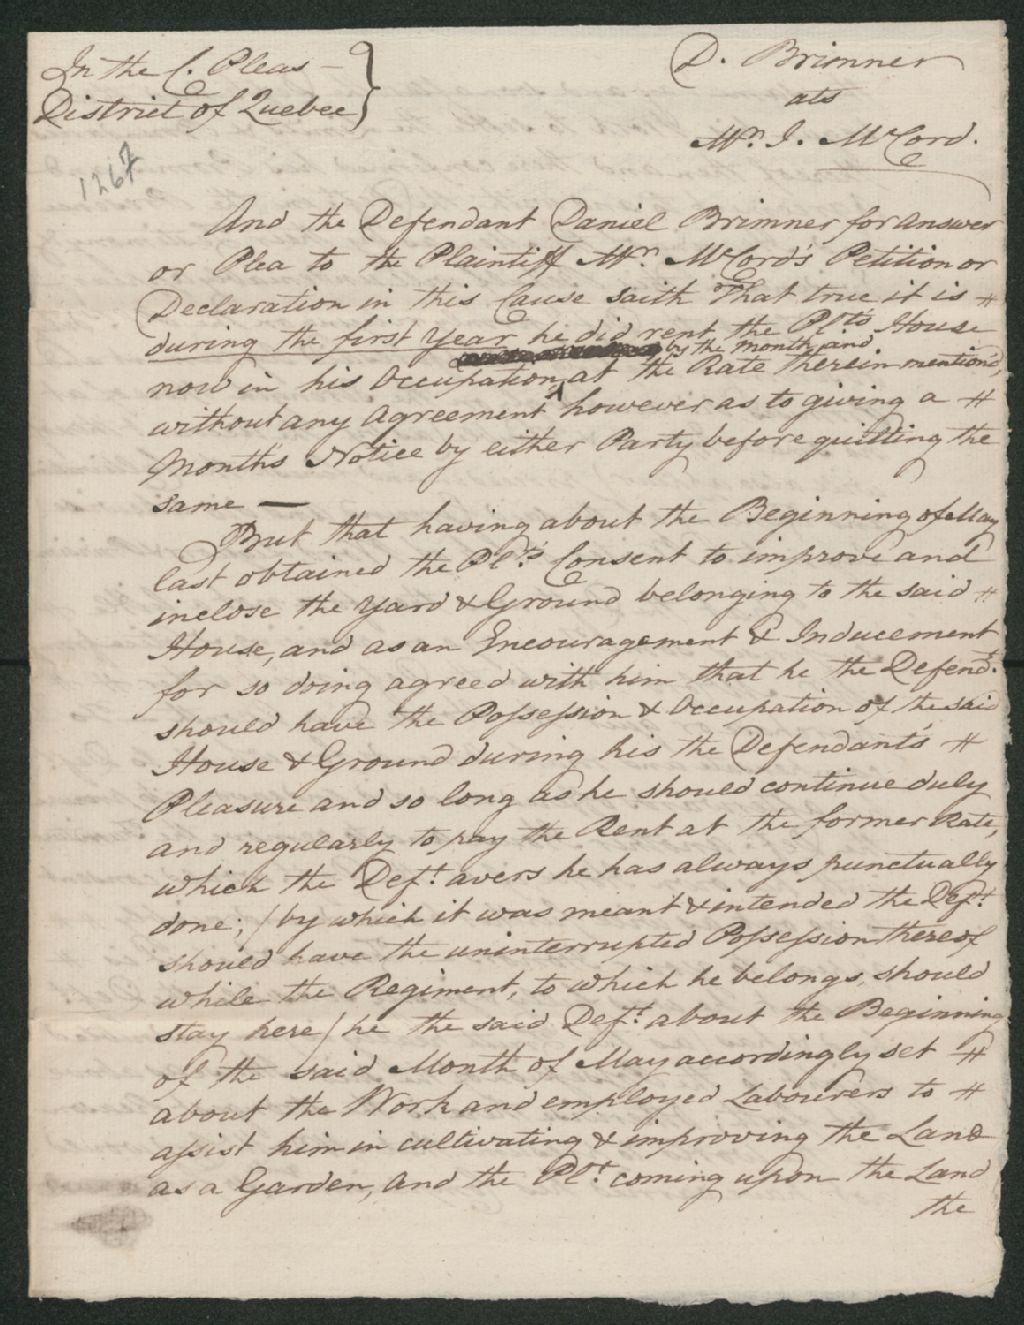 In the C. Pleas —
District of Quebec
D. Brimner
ats
Mr. J. McCord.
1267
And the Defendant Daniel Brimner for Answer
or Plea to the Plaintiff Mr. McCord's Petition or
Declaration in this Cause saith That true it is #
during the first Year he did rent the Plts. House
by the month, and
now in his Occupation ‸ at the Rate therein mention'd,
without any Agreement however as to giving a #
Months Notice by either Party before quitting the
same —
But that having about the Beginning of May
last obtained the Plts. Consent to improve and
inclose the Yard & Ground belonging to the said #
House, and as an Encouragement & Inducement
for so doing agreed with him that he the Defendt.
should have the Possession & Occupation of the said
House & Ground during his the Defendant's #
Pleasure and so long as he should continue duly
and regularly to pay the Rent at the former Rate,
which the Deft. avers he has always punctually
done; / by which it was meant & intended the Deft.
should have the uninterrupted Possession thereof
while the Regiment, to which he belongs, should
stay here / he the said Deft. about the Beginning
of the said Month of May accordingly set #
about the Work and employed Labourers to #
assist him in cultivating & improving the Land
as a Garden, and the Plt. coming upon the Land
the